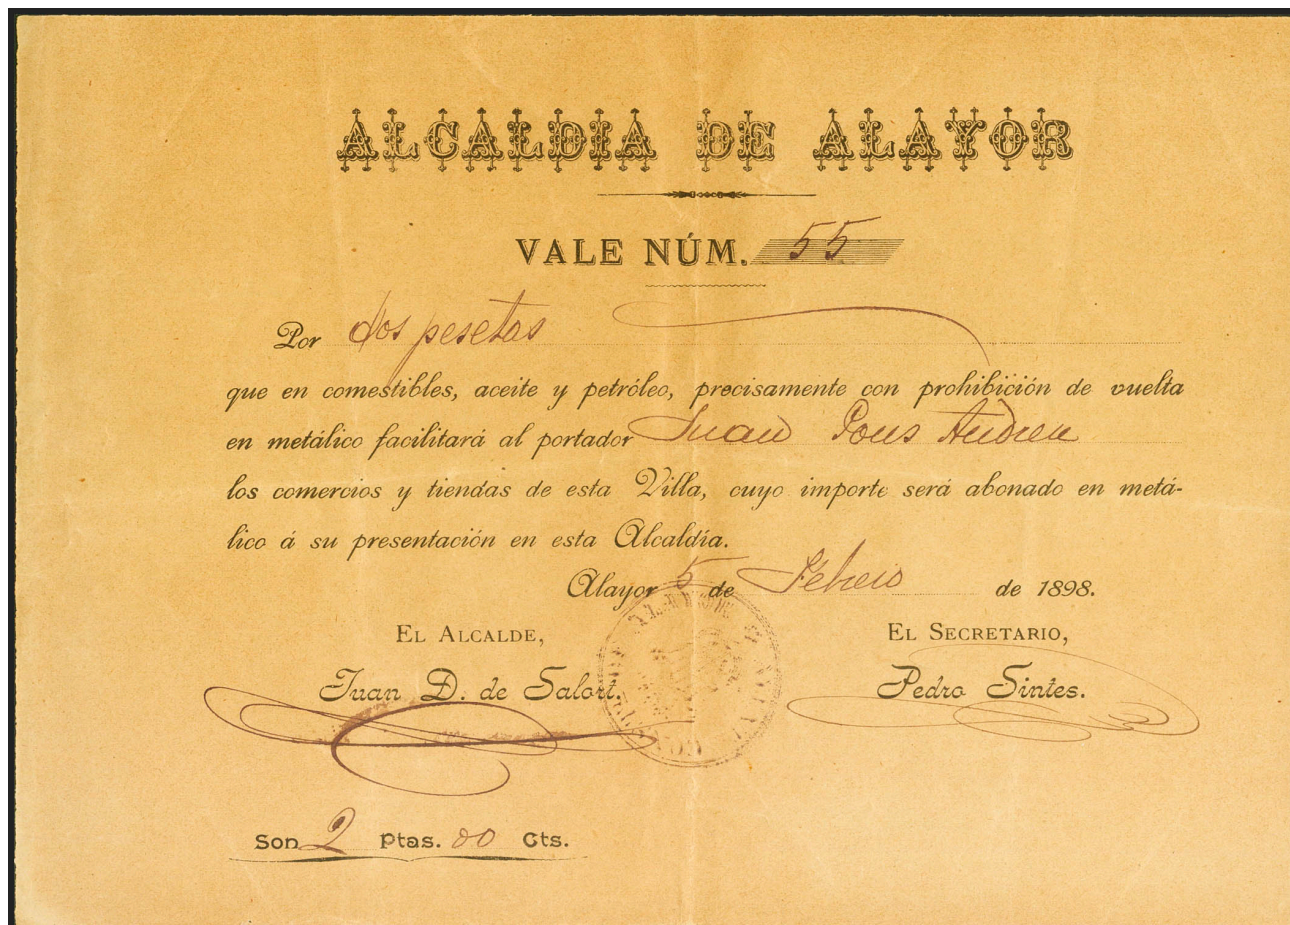 ALCALDIA DE ALAYOR
VALE NÚM. 55
Por dos pesetas
que en comestibles, aceite y petróleo, precisamente con prohibición de vuelta
en metálico facilitará al portador Juan Pons Andreu
los comercios y tiendas de esta Villa, cuyo importe será abonado en metá-
lico á su presentación en esta Alcaldía.
Alayor 5 de Febrero de 1898.
EL ALCALDE,
Juan D. de Salort.
EL SECRETARIO,
Pedro Sintes.
Son 2 Ptas. 00 Cts.